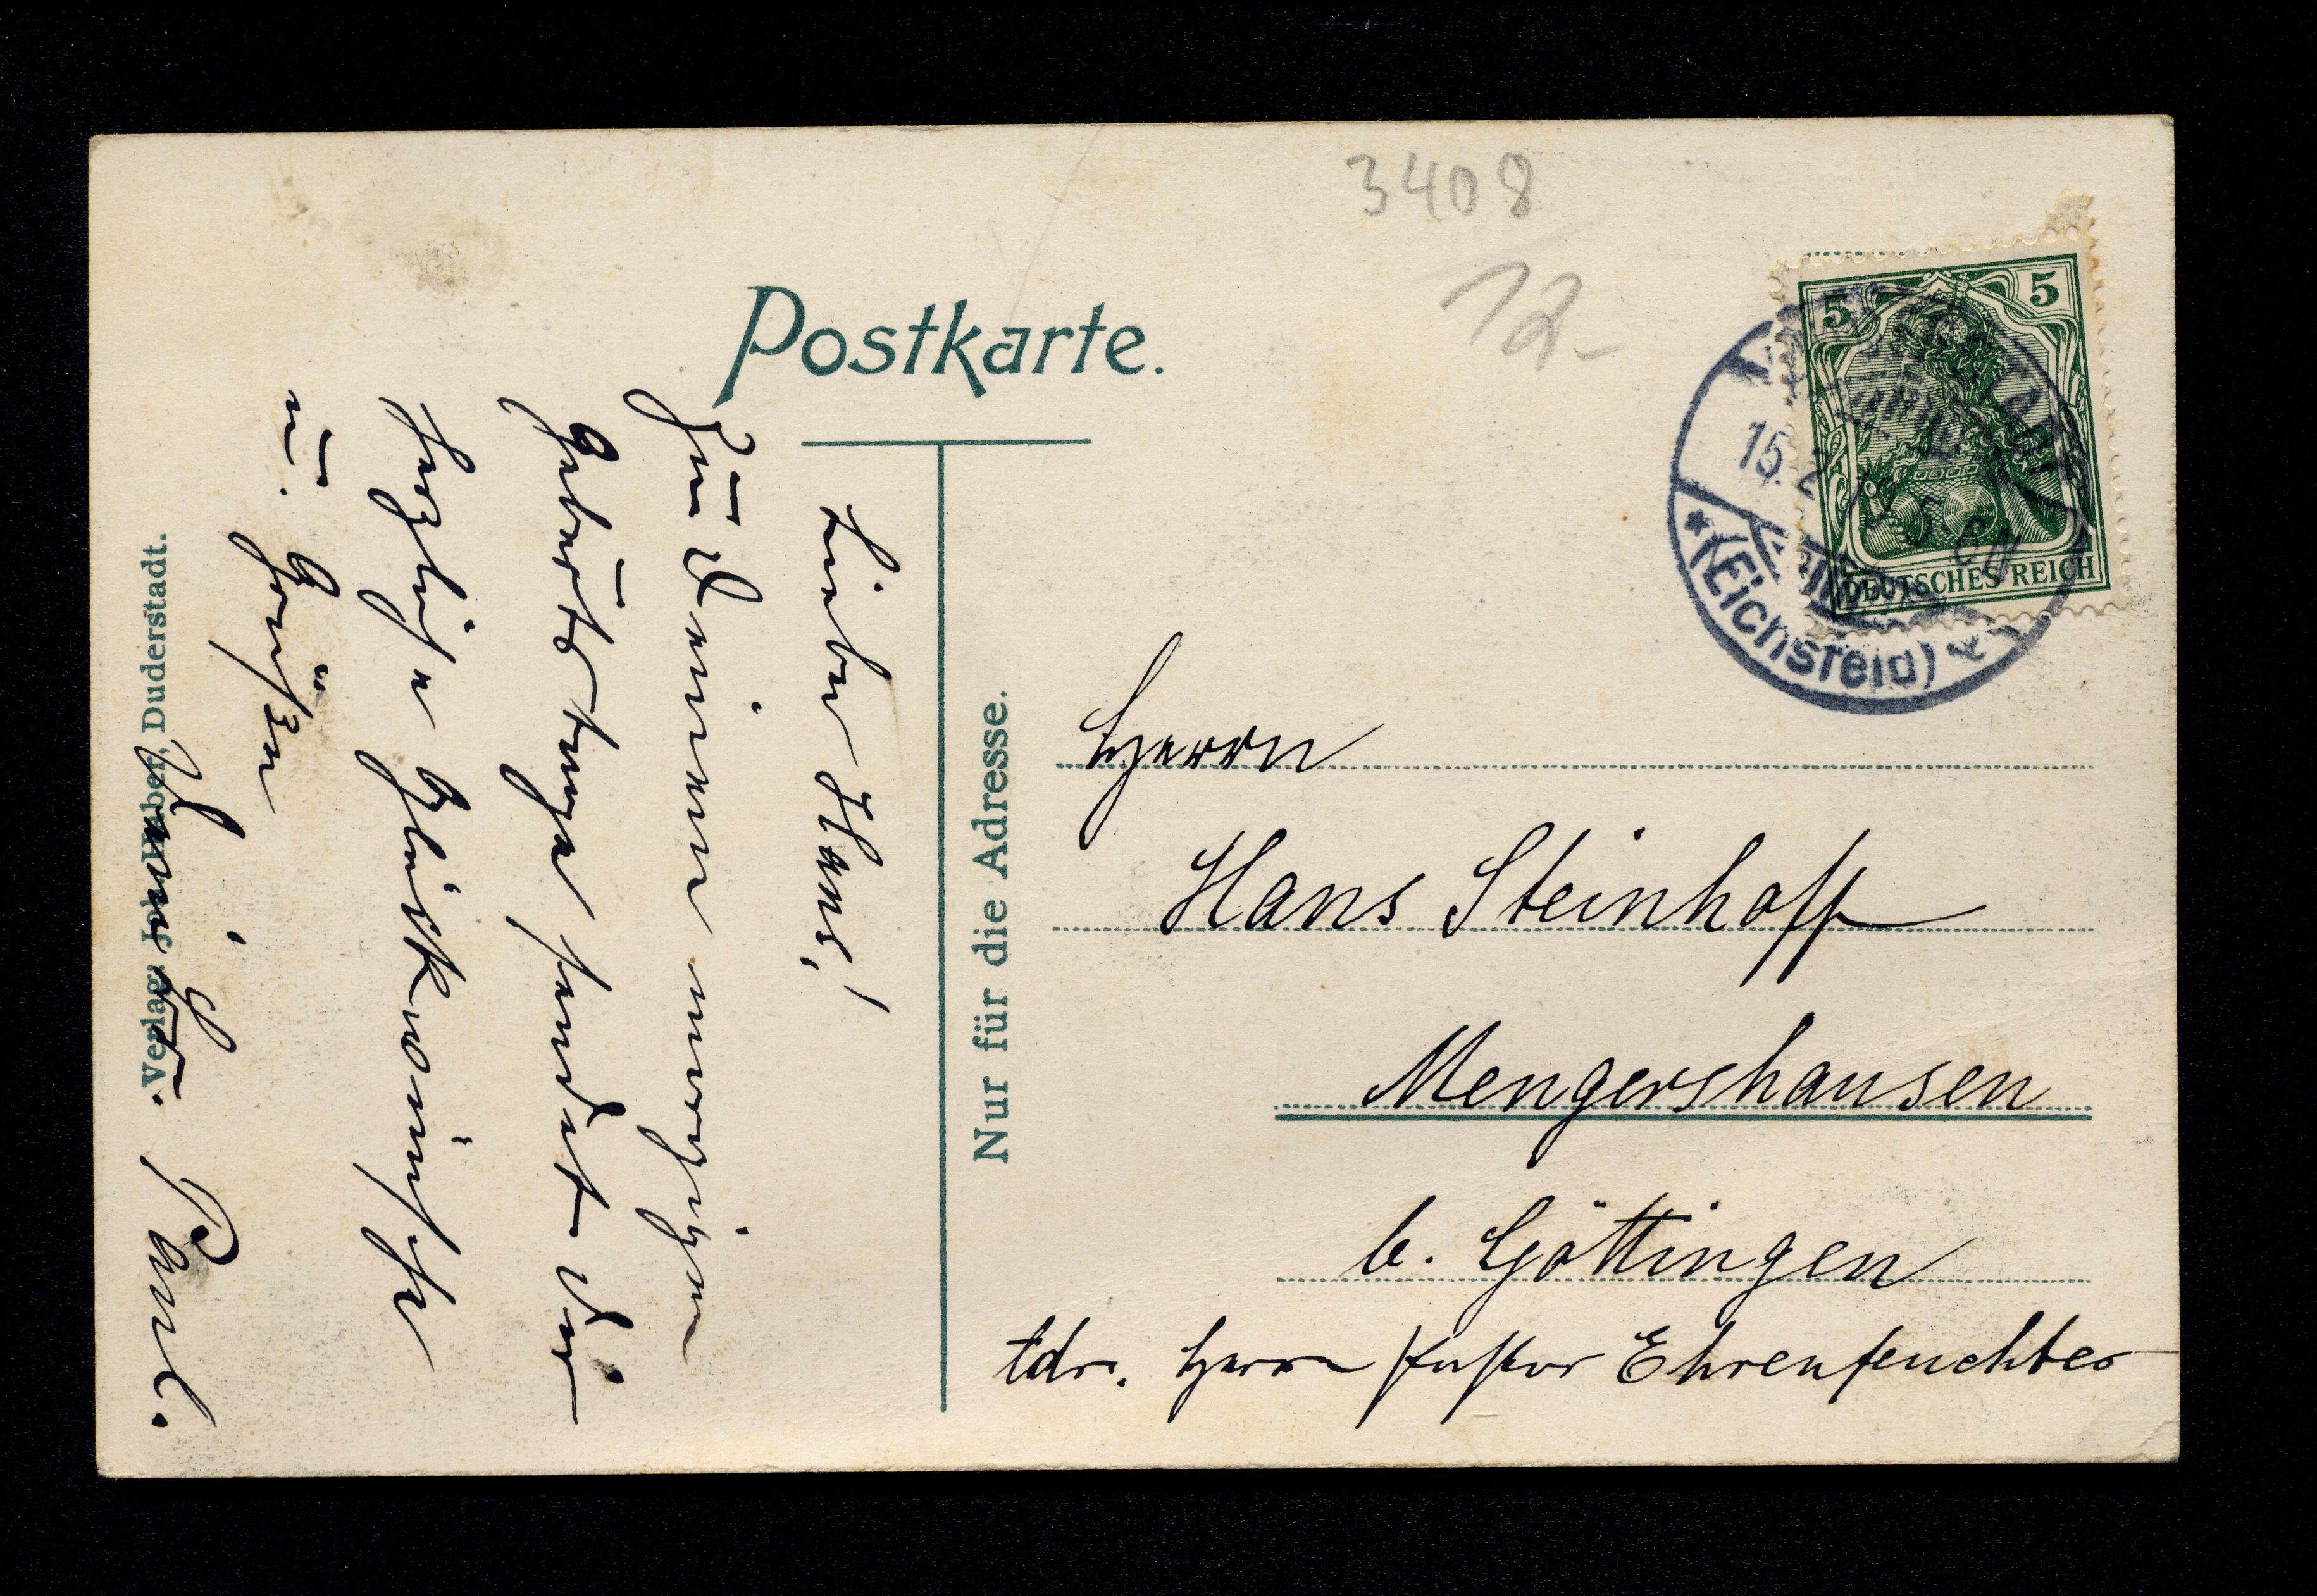 3408
12.-
Postkarte.
5
5
DEUTSCHES REICH
15.2.13 5-6N
*(Eichsfeld)*
Lieber Hans!
Zum Deinem morgigen
Geburtstage sendet Dir
herzliche Glückwünsche
u. Grüße
Dein Fr. Paul.
Verlag: Joh. Hober, Duderstadt.
Nur für die Adresse.
Herrn
Hans Steinhoff
Mengershausen
b. Göttingen
Adr. Herrn Pastor Ehrenfeuchter